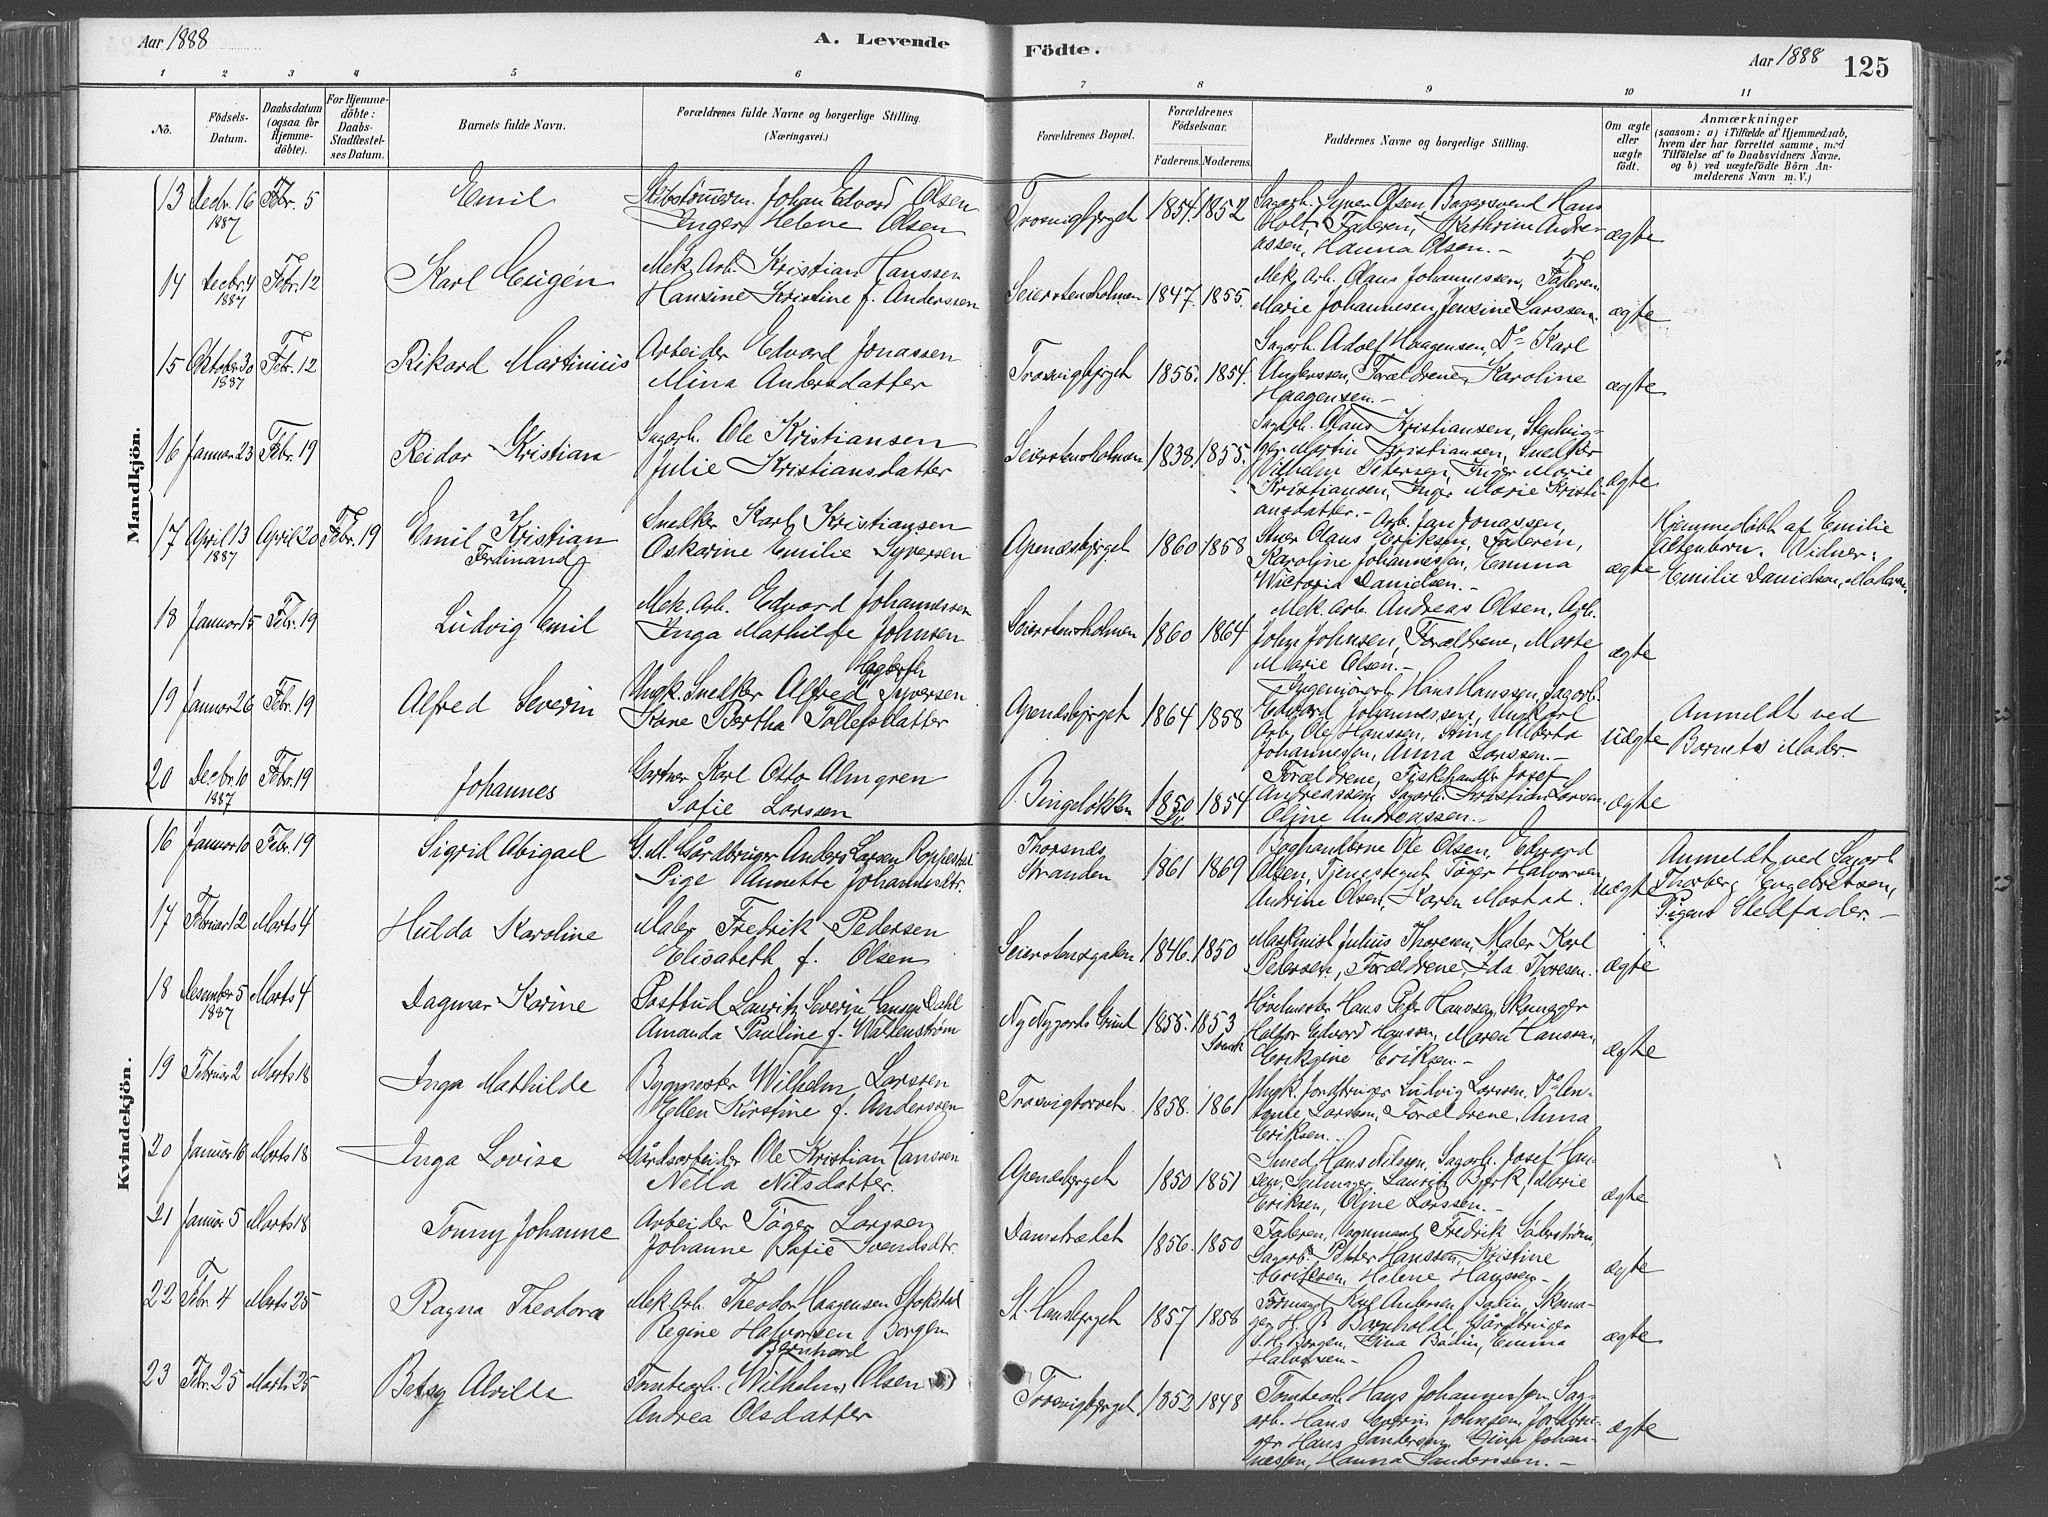 Aar 1888
A. Levende
1 2 3 4 5 6
No.
Födsels-
Datum.
Daabsdatum
(ogsaa for
Hjemme-
döbte).
For Hjemme-
döbte:
Daabs-
Stadfæstel-
ses Datum.
Barnets fulde Navn.
Forældrenes fulde Navne og borgerlige Stilling.
(Næringsvei.)
Födte.
Aar 1888
125
7 8 9 10 11
Forældrenes Bopæl.
Forældrenes
Födselsaar.
Faderens. Moderens.
Faddernes Navne og borgerlige Stilling.
Om ægte
eller
uægte
födt.
Anmærkninger
(saasom: a) i Tilfælde af Hjemmedaab,
hvem der har forrettet samme, med
Tilföielse af to Daabsvidners Navne.
og b) ved uægtefödte Börn An-
melderens Navn m. V.)
Mandkjön.
13 Decbr. 16 Febr. 5 Emil Johan Edvard Olsen
1887 Inger Helene Olsen
Trosvigbjerget 1854. 1852 Sagarb. Syver Olsen, Bagersvend Hans
Holt, Faderen, Kathrine Andre-
assen, Hanna Olsen.- ægte
14 Decbr. 4 Febr. 12 Karl Eugén Mek. Arb. Kristian Hanssen
1887 Hansine Kristine f. Anderssen
Seierstensholmen 1847. 1855. Mek. Arb. Olaus Johannessen, Faderen,
Marie Johannesen, Jensine Larssen. ægte
15 Oktober 30 Febr. 12 Rikard Martinius Arbeider Edvard Jonassen
1887 Mina Andersdatter
Trosvigbjerget 1855. 1854. Sagarb. Adolf Haagensen, Do Karl
Anderssen, Forældrene, Karoline
Haagensen.- ægte
16 Januar 23 Febr. 19 Reidar Kristian Sagarb. Ole Kristiansen
Julie Kristiansdatter
Seierstensholmen 1838. 1855. Sagarb. Olaus Kristiansen,
Martin Kristiansen, Snelker
Vilhelm Petersen, Inger Marie
Kristiansen, Inger Marie Kristi-
ansdatter.- ægte
17 April 13 April 20 Febr. 19 Emil Kristian Snelker Karl Kristiansen
1887 Ferdinand Oskarine Emilie Syversen
Apenæsbjerget 1860 1858 Arb. Jan Jonassen,
Olaus Eriksen, Faderen,
Karoline Johannessen, Emma
Victoria Danielsen.- ægte
Hjemmedöbt af Emilie
Altenborn. Vidner:
Emilie Danielsen, Moderen.
18 Januar 15 Febr. 19 Ludvig Emil Mek. Arb. Edvard Johannessen
Inga Mathilde Johnsen
Seierstensholmen 1860 1864 Mek. Arb. Andreas Olsen, Arb.
John Johnsen, Forældrene, Marte
Marie Olsen.- ægte
19 Januar 26 Febr. 19 Alfred Severin Ungk. Snelker Alfred Syversen
Kone Bertha Tollefsdatter
Apenæsbjerget 1864 1858 Hans Hanssen, Sagarb.
Edvard Johannessen, Ungkarl
Arb. Ole Hanssen, Stina Alberta
Johannessen, Anna Larssen.- uægte
Anmeldt ved
Barnets Moder.
20 Decbr. 10 Febr. 19 Johannes Gartner Karl Otto Almgren
1887 Sofie Larssen
Bingeløkken 1850 1854 Forældrene, Fiskehandler Josef
Andreassen, Sagarb. Kristian Larsen,
Oline Andreassen.- ægte
Kvindekjön.
16 Januar 10 Febr. 19 Sigrid Abigael G. M. Gårdbruger Anders Larsen Roppestad
Pige Annette Johannesdtr.
Thorsnæs
Stranden 1861 1869 Boghandlerne Ole Olsen, Edvard
Olsen, Tjenestegut Tøger Halvorsen,
Andrine Olsen, Karen Mostad. uægte
Anmeldt ved Sagarb.
Thorberg Engebretsen,
Pigens Stedfader.-
17 Februar 12 Marts 4 Hulda Karoline Maler Fredrik Pedersen
Elisabeth f. Olsen
Seierstensgaden 1846. 1850 Maskinist Julius Thoresen, Maler Karl
Petersen, Forældrene, Ida Thoresen. ægte
18 Desember 5 Marts 4 Dagmar Karine Postbud Lauritz Severin Hansen Dahl
1887 Amanda Pauline f. Wallenstrøm
Ny Nygårds Grund 1855. 1853 Høvelmester Hans Peter Hanssen, Skomager
Svensk Edvard Hanssen, Maren Hanssen,
Eriksine Eriksen.- ægte
19 Februar 2 Marts 18 Inga Mathilde Bygmester Wilhelm Larssen
Ellen Kirstine f. Anderssen
Trosvigtorvet. 1858. 1861 Ungk. Jordbruger Ludvig Larssen, Do An-
tone Larssen, Forældrene, Anna
Eriksen.- ægte
20 Januar 16 Marts 18 Inga Lovise Gårdsarbeider Ole Kristian Hanssen
Nella Nilsdatter.
Apenæsbjerget 1850 1851 Smed Hans Nilssen, Sagarb. Josef Han-
sen, Seilmager Lauritz Bjørk, Marie
Eriksen, Oline Larssen.- ægte
21 Januar 5 Marts 18 Tonny Johanne Arbeider Tøger Larssen
Johanne Sofie Svendsdtr.
Damstrædet 1856. 1850 Faderen, Vognmand Fredrik Söderstrøm,
Sagarb. Petter Hanssen, Kristine
Eriksen, Helene Hanssen- ægte
22 Febr. 4 Marts 25 Ragna Theodora Mek. Arb. Theodor Haagensen Spokstad
Regine Halvorsen Borgen
St. Hansbjerget 1857 1858 Formand Karl Andersen Bodin, Skoma-
ger H. P. Barnholdt, Gårdbruger
S. H. Borgen, Gina Bodin, Emma
Halvorsen- ægte
Bernhard
23 Febr. 25 Marts 25 Betsy Alvilde Tomtearb. Wilhelm Olsen
Andrea Olsdatter
Trosvigbjerget 1852 1848 Tomtearb. Hans Johannessen, Sag-
arb. Hans Severin Johnsen, Jordbru-
ger Hans Sandersen, Gina Johan-
nessen, Hanna Sandersen.- ægte